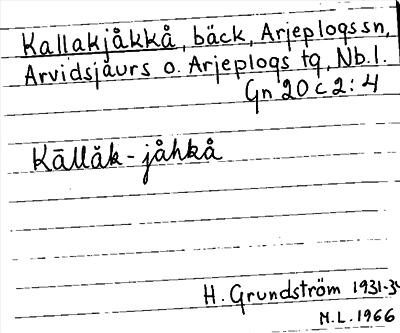 Kallakjåkkå, bäck, Arjeplogs sn,
Arvidsjaurs o. Arjeplogs tg, Nb.l.
Gn 20 c 2:4
Källäk-jåhkå
H. Grundström 1931-34
M.L. 1966